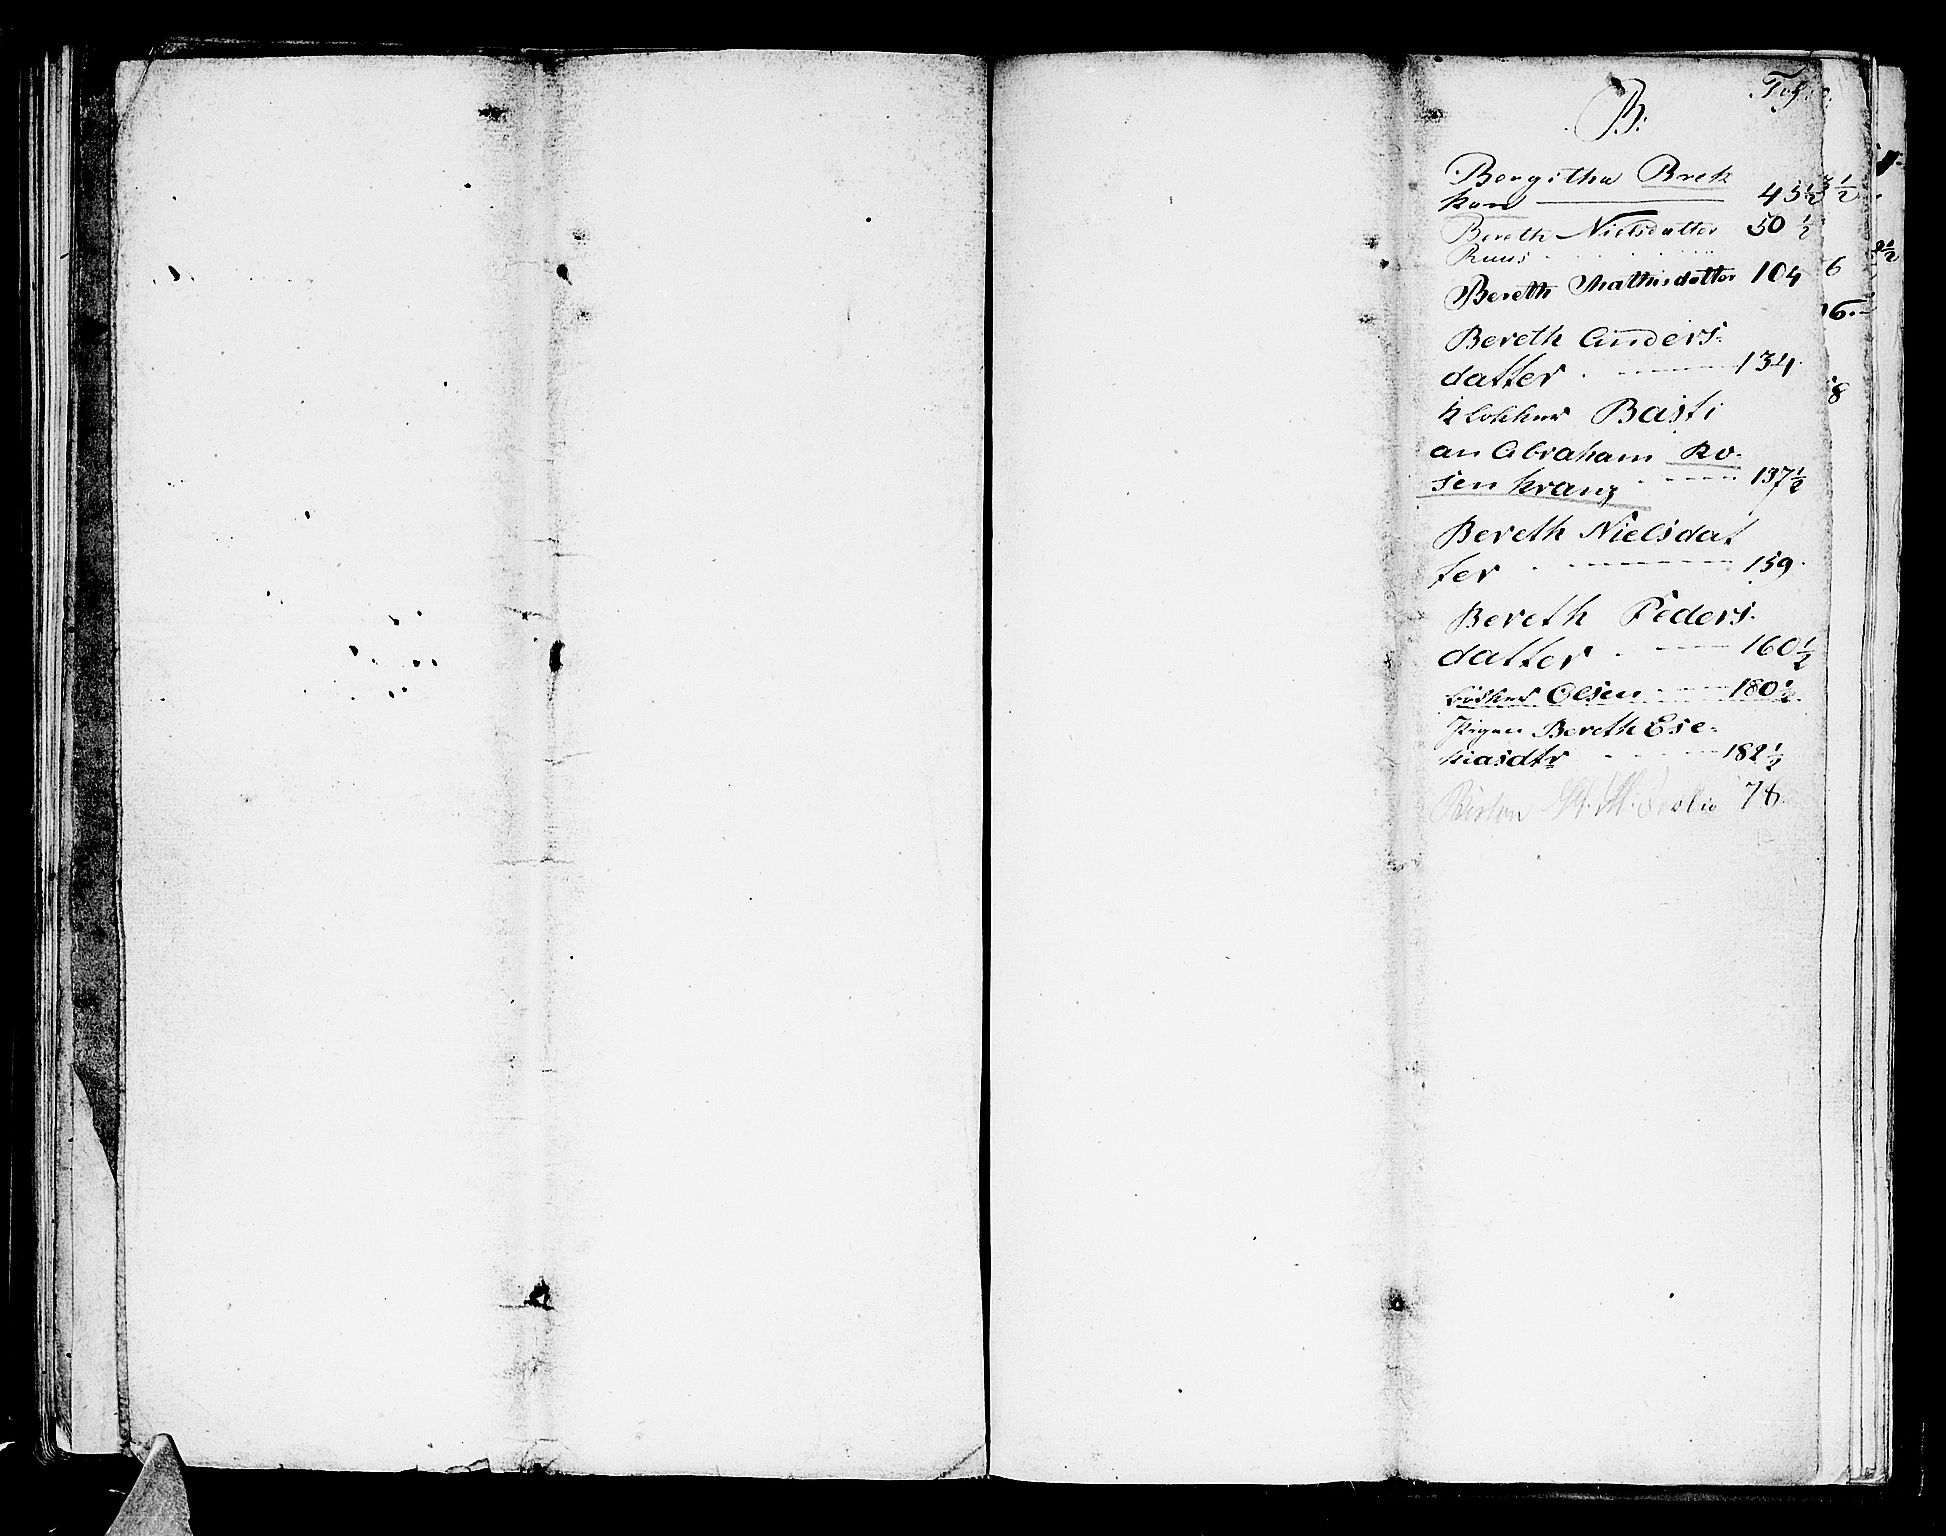 Folio
B.
Bergitha Brek
ken 45½
Bereth Nielsdatter 50½
Ruus
Bereth Mathisdatter 104
Bereth Anders-
datter 134.
Klokker Basti
an Abraham Ro-
senkranz 137½
Bereth Nielsdat
ter 159.
Bereth Peders-
datter 160½
Olsen 180½
Pigen Bereth Ese-
kiasdtr 182½
78.